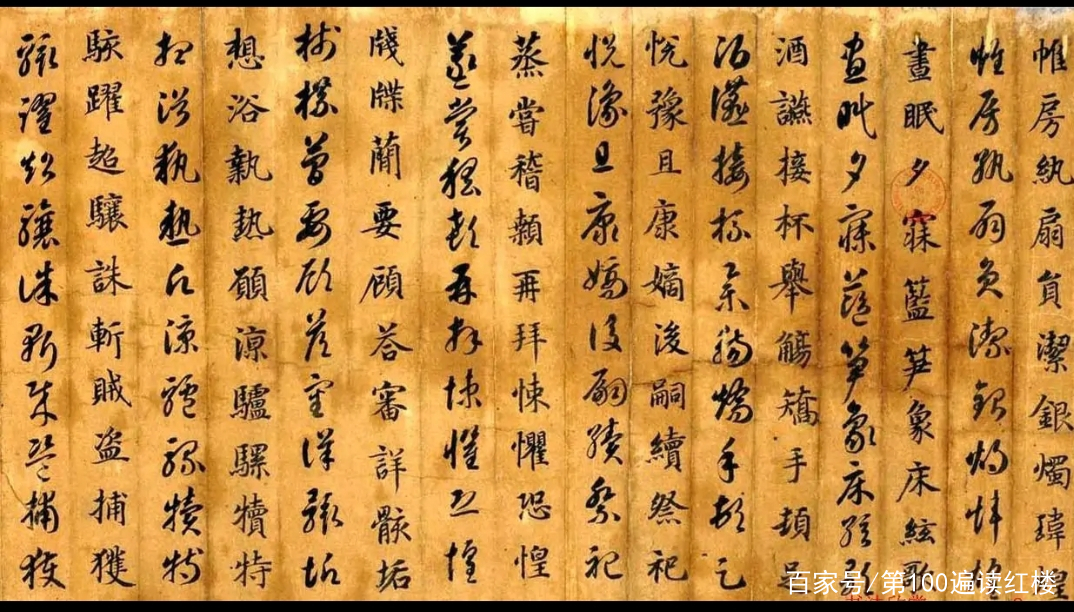 帷房紈扇員潔銀燭瑋煌
帷房紈扇員潔銀燭煒煌
晝眠夕寐藍笋象床絃歌
晝眠夕寐藍笋象床絃歌
酒讌接杯舉觴矯手頓足
酒讌接杯舉觴矯手頓足
悦豫且康嫡後嗣續祭祀
悦豫且康嫡後嗣續祭祀
蒸嘗稽顙再拜悚懼恐惶
蒸嘗稽顙再拜悚懼恐惶
牋牒簡要顧荅審詳骸垢
牋牒簡要顧荅審詳骸垢
想浴執熱願涼驢騾犢特
想浴執熱願涼驢騾犢特
駭躍超驤誅斬賊盗捕獲
駭躍超驤誅斬賊盗捕獲
百家号/第100遍读红楼